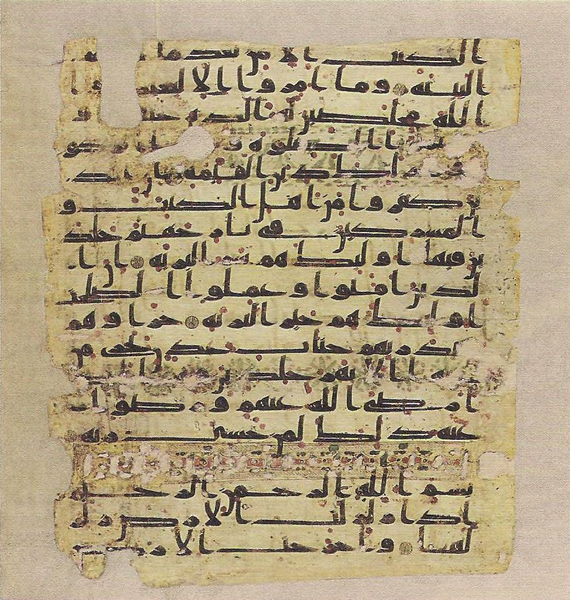 الكتب الا من بعد ما
البينه وما امروا الا ليعبدوا
الله مخلصين له الدين حنفا و
الصلوه
و ذلك دين القيمه ان الذين
كفروا من اهل الكتب و
المشركين في نار جهنم خلد
ين فيها اولئك هم شر البريه ان ا
لذين امنوا وعملوا الصلحت
اولئك هم خير البريه جزاوهم
عند ربهم جنت عدن تجري من
تحتها الانهر خلدين فيها
ابدا رضي الله عنهم ورضوا
عنه ذلك لمن خشي ربه
بسم الله الرحمن الرحيم
اذا زلزلت الارض زلزا
لها واخرجت الارض